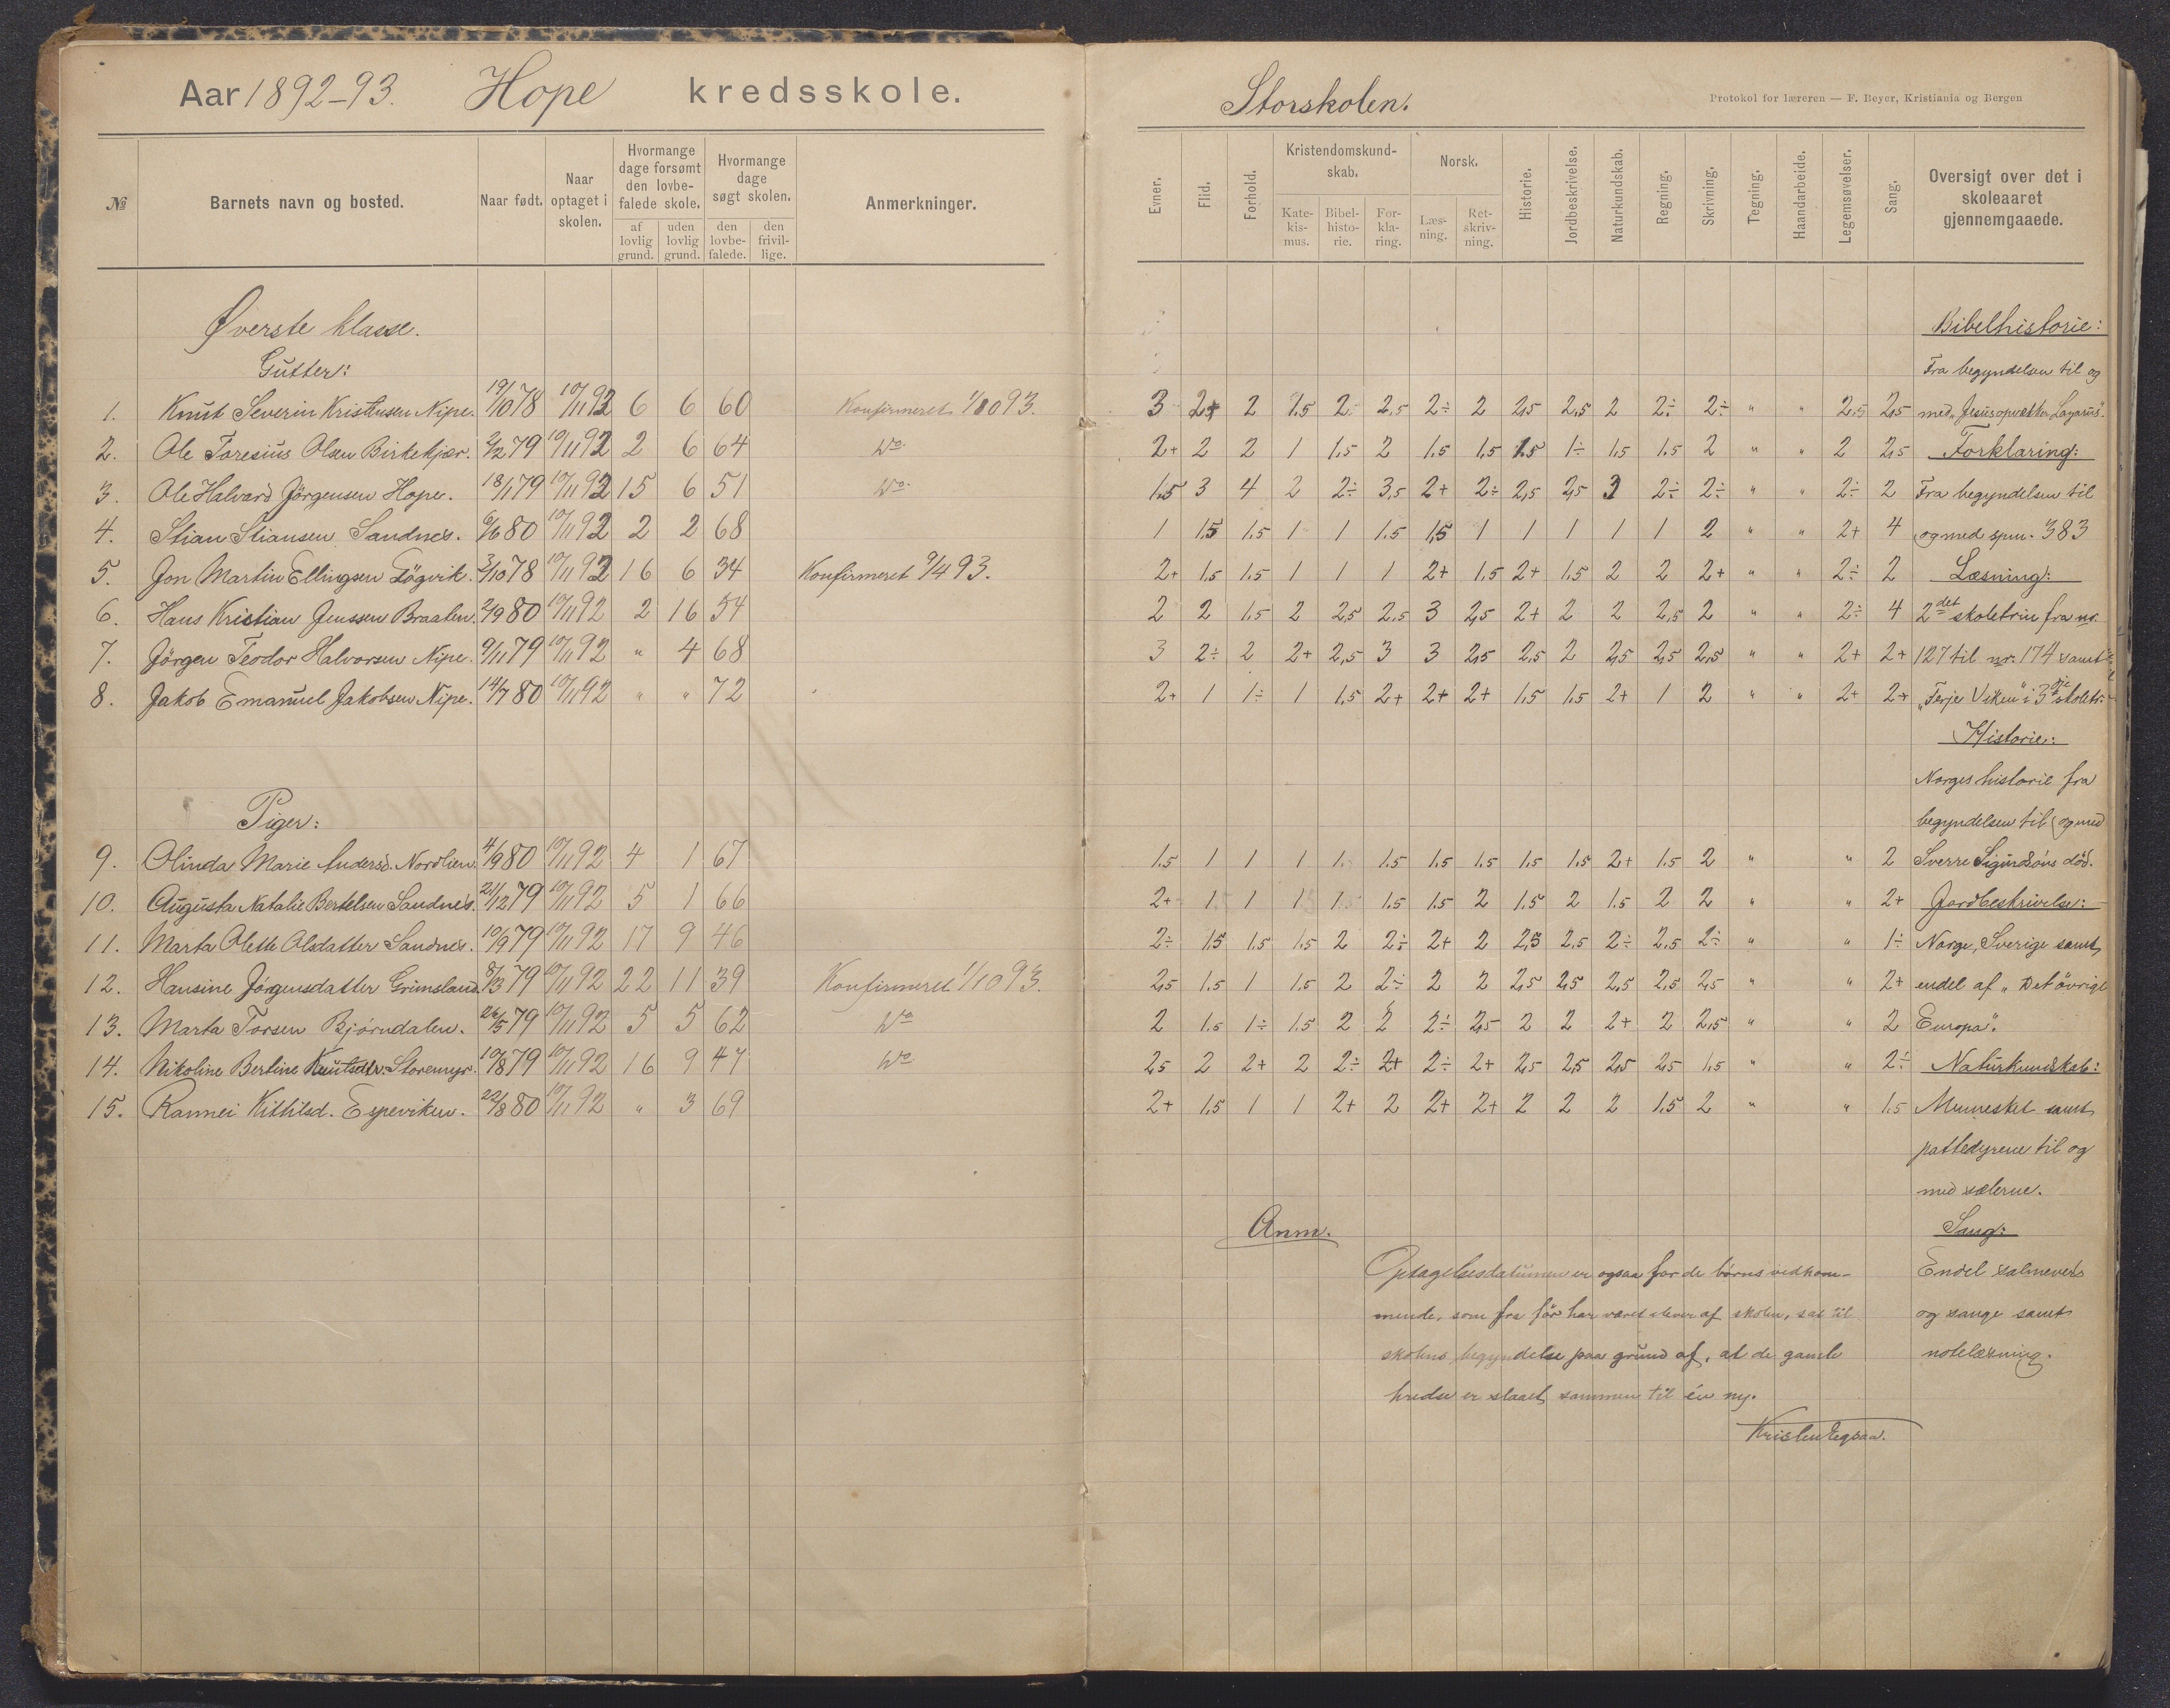 Aar 1892-93. Hope kredsskole.
№ Barnets navn og bosted. Naar født. Naar optaget i skolen. Hvormange dage forsømt den lovbefalede skole. af lovlig grund. uden lovlig grund. Hvormange dage søgt skolen. den lovbefalede. den frivillige. Anmerkninger.
Øverste klasse.
Gutter:
1. Knut Severin Kristensen Nipe. 19/10 78 10/11 92 6 6 60 Konfirmeret 1/10 93.
2. Ole Toresius Olsen Birkekjær. 2/2 79 10/11 92 2 6 64 Do
3. Ole Halvard Jörgensen Hope. 18/1 79 10/11 92 15 6 51 Do
4. Stian Stiansen Sandnes. 6/6 80 10/11 92 2 2 68
5. Jon Martin Ellingsen 3/10 78 10/11 92 16 6 34 Konfirmeret 9/4 93.
6. Hans Kristian Jenssen Braaten. 2/9 80 10/11 92 2 16 54
7. Jörgen Teodor Halvorsen Nipe. 9/11 79 10/11 92 " 4 68
8. Jakob Emanuel Jakobsen Nipe. 14/7 80 10/11 92 " " 72
Piger:
9. Olinda Marie Andersd. Nordlien. 4/9 80 10/11 92 4 1 67
10. Augusta Natalie Bertelsen Sandnes. 21/12 79 10/11 92 5 1 66
11. Marta Olette Olsdatter Sandnes. 10/9 79 10/11 92 17 9 46
12. Hansine Jörgensdatter Grimsland. 8/3 79 10/11 92 22 11 39 Konfirmeret 1/10 93.
13. Marta Torsen Bjørndalen. 26/5 79 10/11 92 5 5 62 Do
14. Nikoline Bertine Knutsdtr. Storemyr. 10/8 79 10/11 92 16 9 47 Do
15. Rannei Kittilsd. Espeviken. 22/8 80 10/11 92 " 3 69
Storskolen.
Protokol for læreren — F. Beyer, Kristiania og Bergen
Evner. Flid. Forhold. Kristendomskundskab. Katekismus. Bibelhistorie. Forklaring. Norsk. Læsning. Retskrivning. Historie. Jordbeskrivelse. Naturkundskab. Regning. Skrivning. Tegning. Haandarbeide. Legemsøvelser. Sang. Oversigt over det i skoleaaret gjennemgaaede.
3 2+ 2 1.5 2 2,5 2÷ 2 2,5 2,5 2 2÷ 2÷ " " 2,5 2,5
2+ 2 2 1 1.5 2 1.5 1,5 1.5 1÷ 1,5 1.5 2 " " 2 2,5
1.5 3 4 2 2÷ 3,5 2+ 2÷ 2,5 2,5 3 2÷ 2÷ " " 2÷ 2
1 1.5 1.5 1 1 1.5 1,5 1 1 1 1 1 2 " " 2+ 4
2+ 1.5 1.5 1 1 1 2+ 1.5 2+ 1,5 2 2 2+ " " 2÷ 2
2 2 1.5 2 2,5 2,5 3 2,5 2+ 2 2 2,5 2 " " 2÷ 4
3 2÷ 2 2+ 2,5 3 3 2,5 2,5 2 2,5 2,5 2,5 " " 2+ 2+
2+ 1 1÷ 1 1.5 2+ 2+ 2+ 1,5 1,5 2+ 1 2 " " 2+ 2+
1.5 1 1 1 1. 1.5 1.5 1.5 1.5 1.5 2+ 1.5 2 " " 2
2+ 1 1 1 1 1.5 1.5 2 1.5 2 1.5 2 2 " " 2+
2÷ 1.5 1.5 1.5 2 2÷ 2+ 2 2,5 2,5 2÷ 2,5 2÷ " " 1÷
2,5 1.5 1 1.5 2 2÷ 2 2 2,5 2,5 2,5 2,5 2,5 " " 2+
2 1.5 1÷ 1.5 2 2 2÷ 2,5 2 2 2+ 2 2,5 " " 2
2,5 2 2+ 2 2÷ 2+ 2÷ 2+ 2,5 2,5 2,5 2,5 1,5 " " 2÷
2+ 1,5 1 1 2+ 2 2+ 2+ 2 2 2 1.5 2 " " 1.5
Bibelhistorie:
Fra begyndelsen til og
med „Jesus opvækker Lazarus".
Forklaring:
Fra begyndelsen til
og med spm. 383
Læsning:
2det skoletrin fra nr.
127 til nr. 174 samt
„Terje Viken" i 3die skoletr.
Historie:
Norges historie fra
begyndelsen til og med
Sverre Sigurdsöns död.
Jordbeskrivelse:
Norge, Sverige samt
endel af „Det övrige
Europa".
Naturkundskab:
Mennesket samt
pattedyrene til og
med sælerne.
Sang:
Endel salmevers
og sange samt
notelæsning.
Anm.
Optagelsesdatumen er ogsaa for de börns vedkom-
mende, som fra för har været elever af skolen, sat til
skolens begyndelse paa grund af, at de gamle
kredse er slaaet sammen til én ny.
Kristen Egsaa.